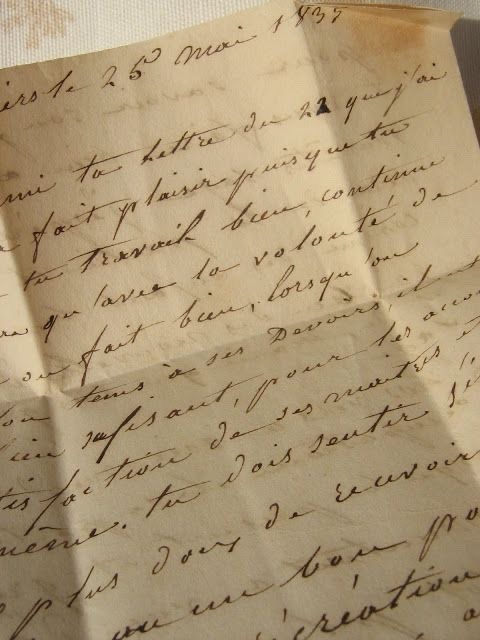 iers le 25 mai 1837
mi ta lettre du 22 que j'ai
a fait plaisir puisque tu
tu travail bien, continue
re qu'avec la volonté de
on fait bien, lorsqu'on
bon tems à ses Devoirs il
bien sufisant, pour les
tisfaction de ses maitres et
même. tu dois sentir
plus doux de recevoir
ou un bon
récréation